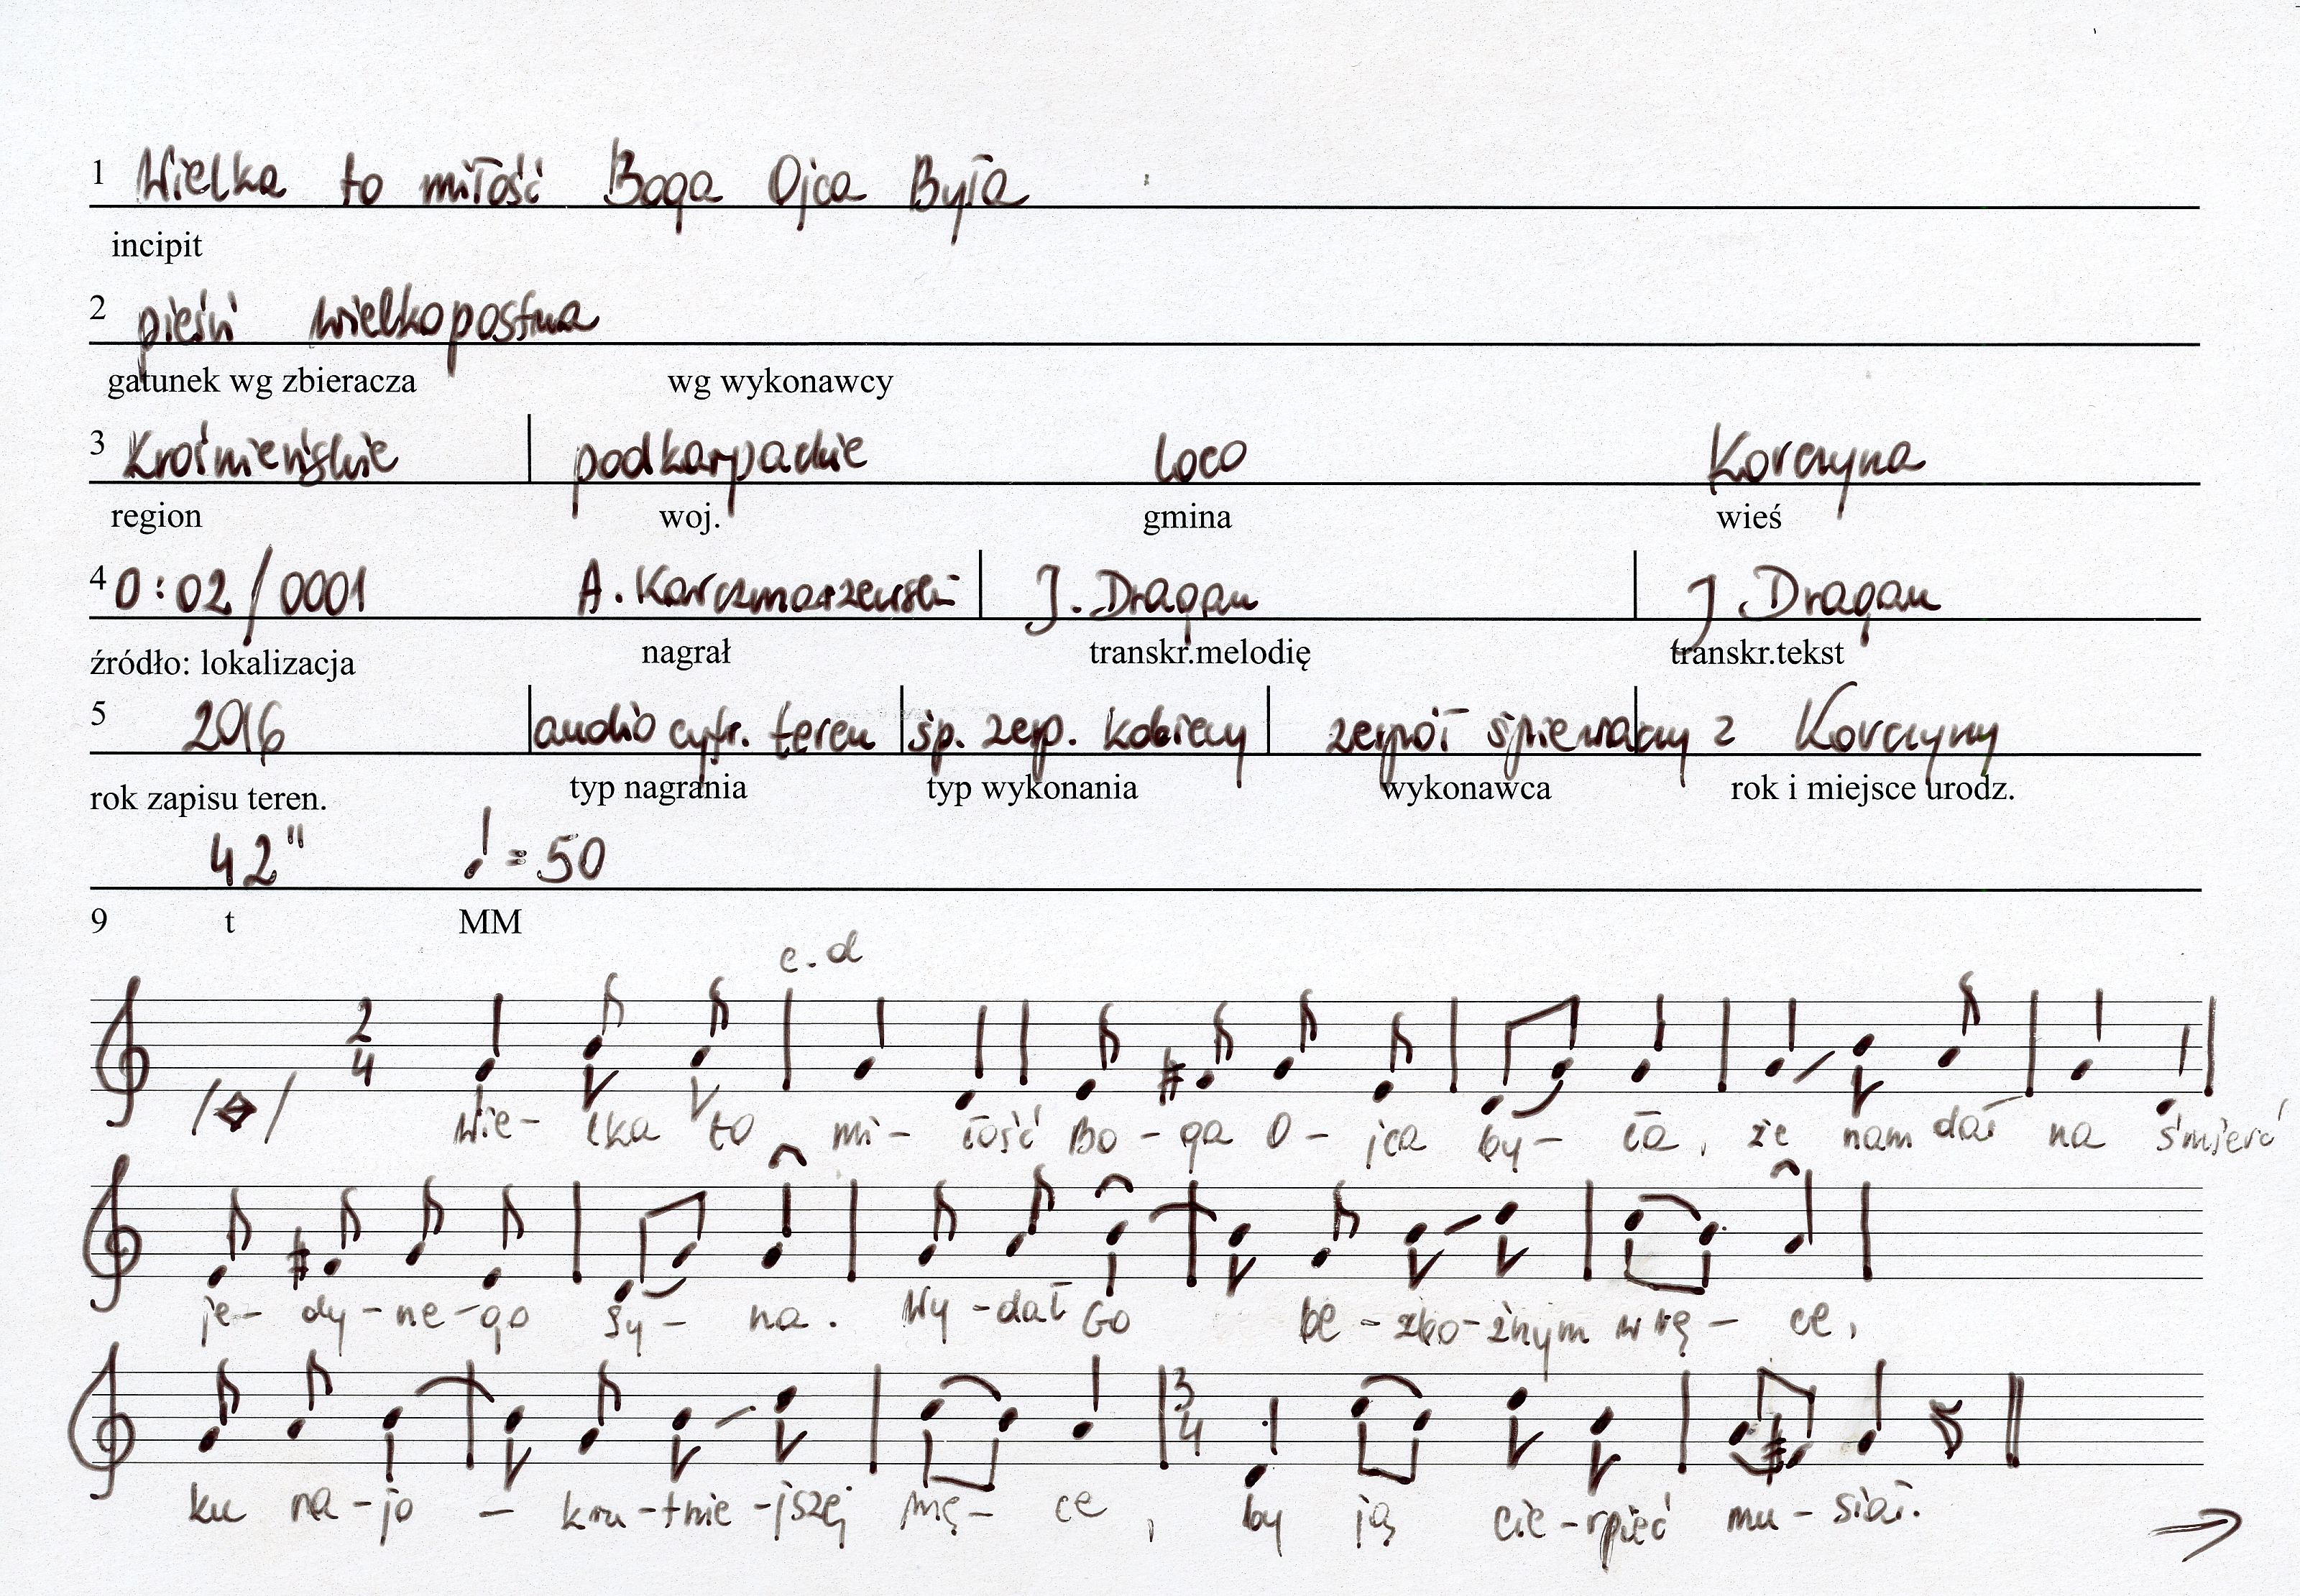 1 Wielka to miłość Boga Ojca Była
incipit
2 pieśń wielkopostna
gatunek wg zbieracza wg wykonawcy
3 Krośnieńskie podkarpackie loco Korczyna
region woj. gmina wieś
4 0:02/0001 A. Karczmarzewski J. Dragan J. Dragan
źródło: lokalizacja nagrał transkr.melodię transkr.tekst
5 2016 audio cyfr. teren śp. zesp. kobiecy zespół śpiewaczy z Korczyny
rok zapisu teren. typ nagrania typ wykonania wykonawca rok i miejsce urodz.
42" ♩ = 50
9 t MM
e.d
2
4
Wie- lka to mi- łość Bo - ga O - jca by - ła, że nam dał na śmierć
je- dy-ne-go Sy - na. Wy-dał Go be-zbo-żnym w rę- ce,
3
4
ku na-jo - kru-tnie-jszej mę- ce, by ją cie-rpieć mu-siał.